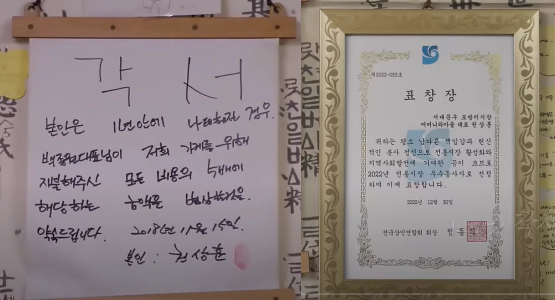 각 서
본인은 1년안에 나태해질 경우
백종원대표님이 저희 가게를 위해
지불해주신 모든 비용의 5배에
해당하는 금액을
약속드립니다. 2018년 11월 15일.
본인 : 권상훈
제2022-093호
표 창 장
서대문구 포방터시장
어머니와아들 대표 권상훈
귀하는 평소 남다른 책임감과 헌신
적인 봉사 정신으로 전통시장 활성화와
지역사회발전에 기여한 공이 크므로
2022년 전통시장 우수봉사자로 선정
하여 이에 표창합니다.
2022년 12월 30일
전국상인연합회 회장 정동식